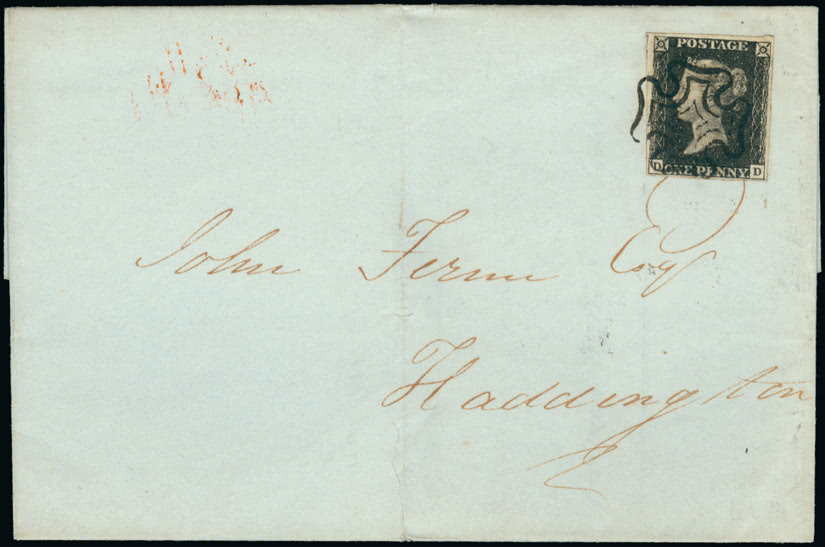 POSTAGE
D ONE PENNY D
John Ferme Esq
Haddington